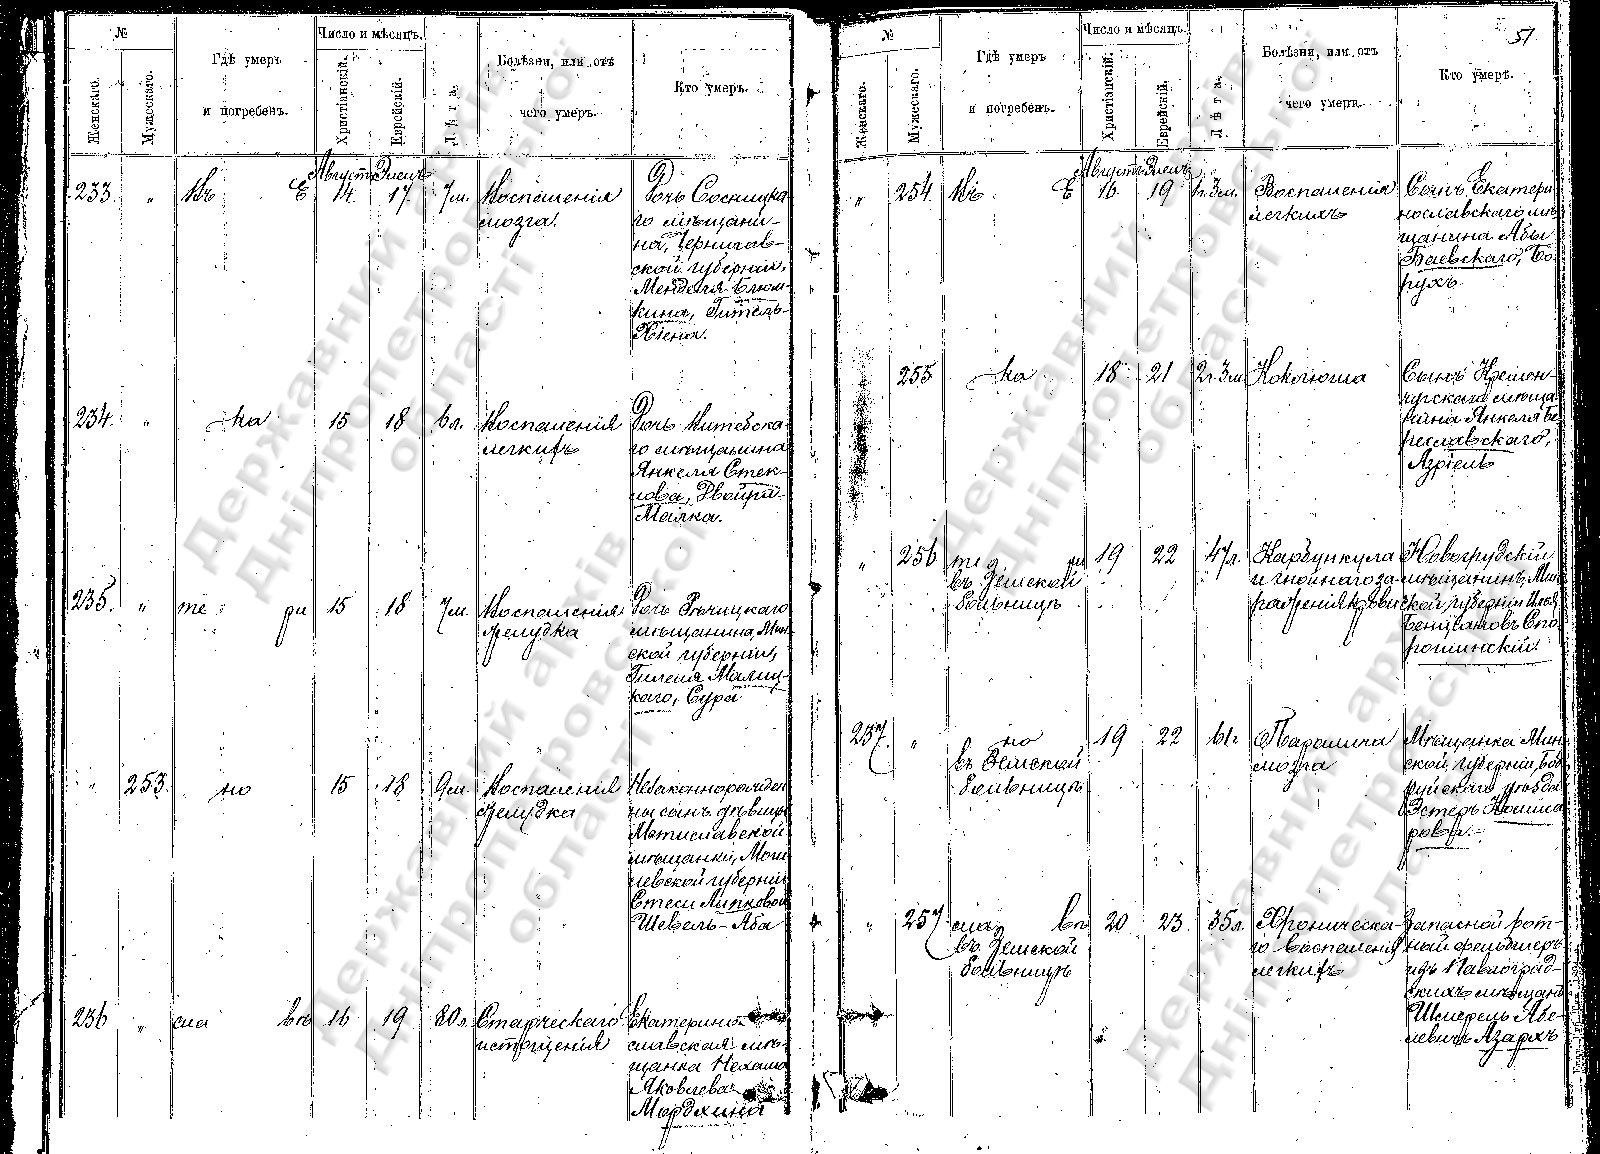 №
Женскаго.
Мужескаго.
Гдѣ умеръ
и погребенъ.
Число и мѣсяцъ.
Христіанскій.
Еврейскій.
Лѣта.
Болѣзни, или отъ
чего умеръ.
Кто умеръ.
Августъ Элелъ
233. " Въ Е 14 17 7м.
Воспаленія
мозга.
Дочь Сосницка-
го мѣщани-
на, Чернигов-
ской губерніи,
Менделя Блюм-
кина, Гитель-
Хіеня.
234. " ка 15 18 6л.
Воспаленія
легкихъ
Дочь Витебска-
го мѣщанина
Янкеля Стек-
лова, Двойра-
Малка.
235. " те ри 15 18 7м.
Воспаленія
желудка
Дочь Рѣчицкаго
мѣщанина, Мин-
ской губерніи,
Гилеля Малиц-
каго, Сура
" 253. но 15 18 9м.
Воспаленія
желудка
Незаконнорожден
ны сынъ дѣвицы
Мстиславской
мѣщанки, Моги
левской губерніи
Стеси Липковой
Шевель-Аба
236 " сла вѣ 16 19 80л.
Старческаго
истощенія
Екатерино-
славская мѣ-
щанка Нехама
Яковлева
Мордхина
51
№
Женскаго.
Мужескаго.
Гдѣ умеръ
и погребенъ.
Число и мѣсяцъ.
Христіанскій.
Еврейскій.
Лѣта.
Болѣзни, или отъ
чего умеръ.
Кто умеръ.
Августъ Элелъ
" 254. Въ Е 16 19 1г.3м.
Воспаленія
легкихъ
Сынъ Екатери
нославскаго мѣ
щанина Абы
Баевскаго, Бо-
рухъ
255 ка 18 21 2г.3м
Коклюша
Сынъ Кремен-
чугскаго мѣща
нина Янкеля Бе
реславскаго,
Азріель
" 256 те ри 19 22 47л.
въ Земской
больницѣ
Карбункула
и гнойнаго за-
раженія крови
Новогрудскій
мѣщанинъ, Мин
ской губерніи Илья
Спо
ротинскій.
237. " но 19 22 61г
въ Земской
больницѣ
Паралича
мозга
Мѣщанка Мин
ской губерніи, Боб
руйскаго уѣзда
Эстеръ Кашта
рова.
" 257 сла вѣ 20 23. 35л.
въ Земской
больницѣ
Хроническа-
го воспаленія
легкихъ
Запасной рот-
ный фельдшеръ
изъ Павлоград-
скихъ мѣщанъ
Шмерель Абе-
левичъ Азархъ
Державний архів
Дніпропетровської
області
Державний архів
Дніпропетровської
області
Державний архів
Дніпропетровської
області
Державний архів
Дніпропетровської
області